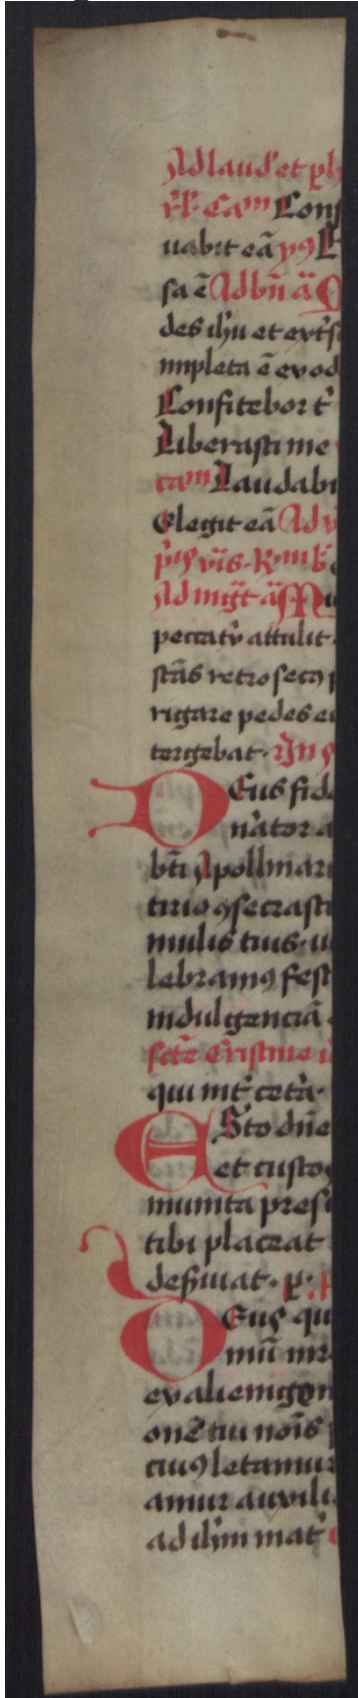 Ad laud' et ph
r̄k. Cam̄ Cons
uabit eā yꝰ E
sa ē Ad bn̄ ā S
des ihū et ext's
impleta ē ex od
Confitebor t'
Liberasti me
cam̄ Laudabi
Elegit eā Ad v
Ad mgt̄ ā Mu
peccat' attulit
stās retro secꝰ p
rigare pedes ei
tergebat. In s
Deus fide
n'ator a
bt̄i Apollinari
tirio ꝯsecrasti
mulis tuis. u
lebramꝰ fest
indulgenciā
sctē Cristine
qui int' cet'a.
Esto dn̄e
et custo
munita presi
tibi placeat
deßuiat. p.
Deus qui
mūi mr
ex alienigen
onē tui nois
ciuꝰ letamur
amur auxili
ad ihm mat'